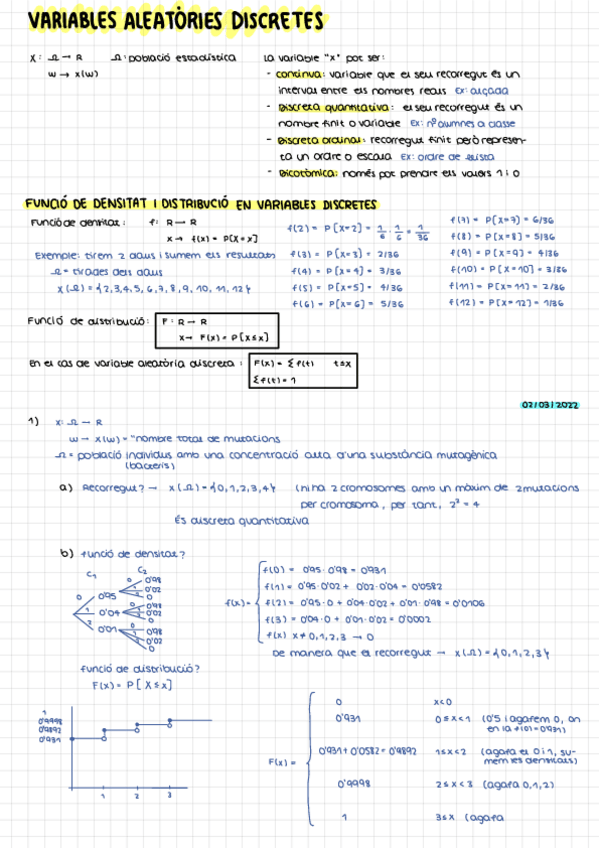 VARIABLES ALEATÒRIES DISCRETES
X: Ω → R   Ω: població estadística
w → x(w)
La variable "x" pot ser:
- contínua: variable que el seu recorregut és un
interval entre els nombres reals Ex: alçada
- Discreta quantitativa: el seu recorregut és un
nombre finit o variable Ex: nº alumnes a classe
- Discreta ordinal: recorregut finit però represen-
ta un ordre o escala Ex: ordre de llista
- Dicotòmica: només pot prendre els valors 1 i 0
FUNCIÓ DE DENSITAT I DISTRIBUCIÓ EN VARIABLES DISCRETES
Funció de densitat: f: R → R
x → f(x) = P[X=x]
Exemple: tirem 2 daus i sumem els resultats
Ω = tirades dels daus
X(Ω) = {2,3,4,5,6,7,8,9,10,11,12}
f(2) = P[X=2] = 1/6 · 1/6 = 1/36
f(3) = P[X=3] = 2/36
f(4) = P[X=4] = 3/36
f(5) = P[X=5] = 4/36
f(6) = P[X=6] = 5/36
f(7) = P[X=7] = 6/36
f(8) = P[X=8] = 5/36
f(9) = P[X=9] = 4/36
f(10) = P[X=10] = 3/36
f(11) = P[X=11] = 2/36
f(12) = P[X=12] = 1/36
Funció de distribució: F: R → R
x → F(x) = P[X≤x]
En el cas de variable aleatòria discreta: F(x) = Σf(t)   t≤x
Σf(t) = 1
02/03/2022
1) X: Ω → R
w → x(w) = "nombre total de mutacions
Ω = població individus amb una concentració alta d'una substància mutagènica
(bacteris)
a) Recorregut? → X(Ω) = {0,1,2,3,4} (hi ha 2 cromosomes amb un màxim de 2 mutacions
per cromosoma, per tant, 2² = 4
És discreta quantitativa
b) funció de densitat?
C1 C2
0 0'95 0 0'98
1 0'02
2 0
1 0'04 0'98
0'02
0
2 0'01 0'98
0'02
0
f(x) =
f(0) = 0'95 · 0'98 = 0'931
f(1) = 0'95 · 0'02 + 0'02 · 0'04 = 0'0582
f(2) = 0'95 · 0 + 0'04 · 0'02 + 0'01 · 0'98 = 0'0106
f(3) = 0'04 · 0 + 0'01 · 0'02 = 0'0002
f(x) x≠0,1,2,3 → 0
De manera que el recorregut → X(Ω) = {0,1,2,3}
funció de distribució?
F(x) = P[X≤x]
1
0'9998
0'9892
0'931
1 2 3
F(x) =
0   x<0
0'931   0≤x<1 (0'5 i agafem 0, on
en la f(0) = 0'931)
0'931 + 0'0582 = 0'9892   1≤x<2 (agafa el 0 i 1, su-
mem les densitats)
0'9998   2≤x<3 (agafa 0,1,2)
1   3≤x (agafa